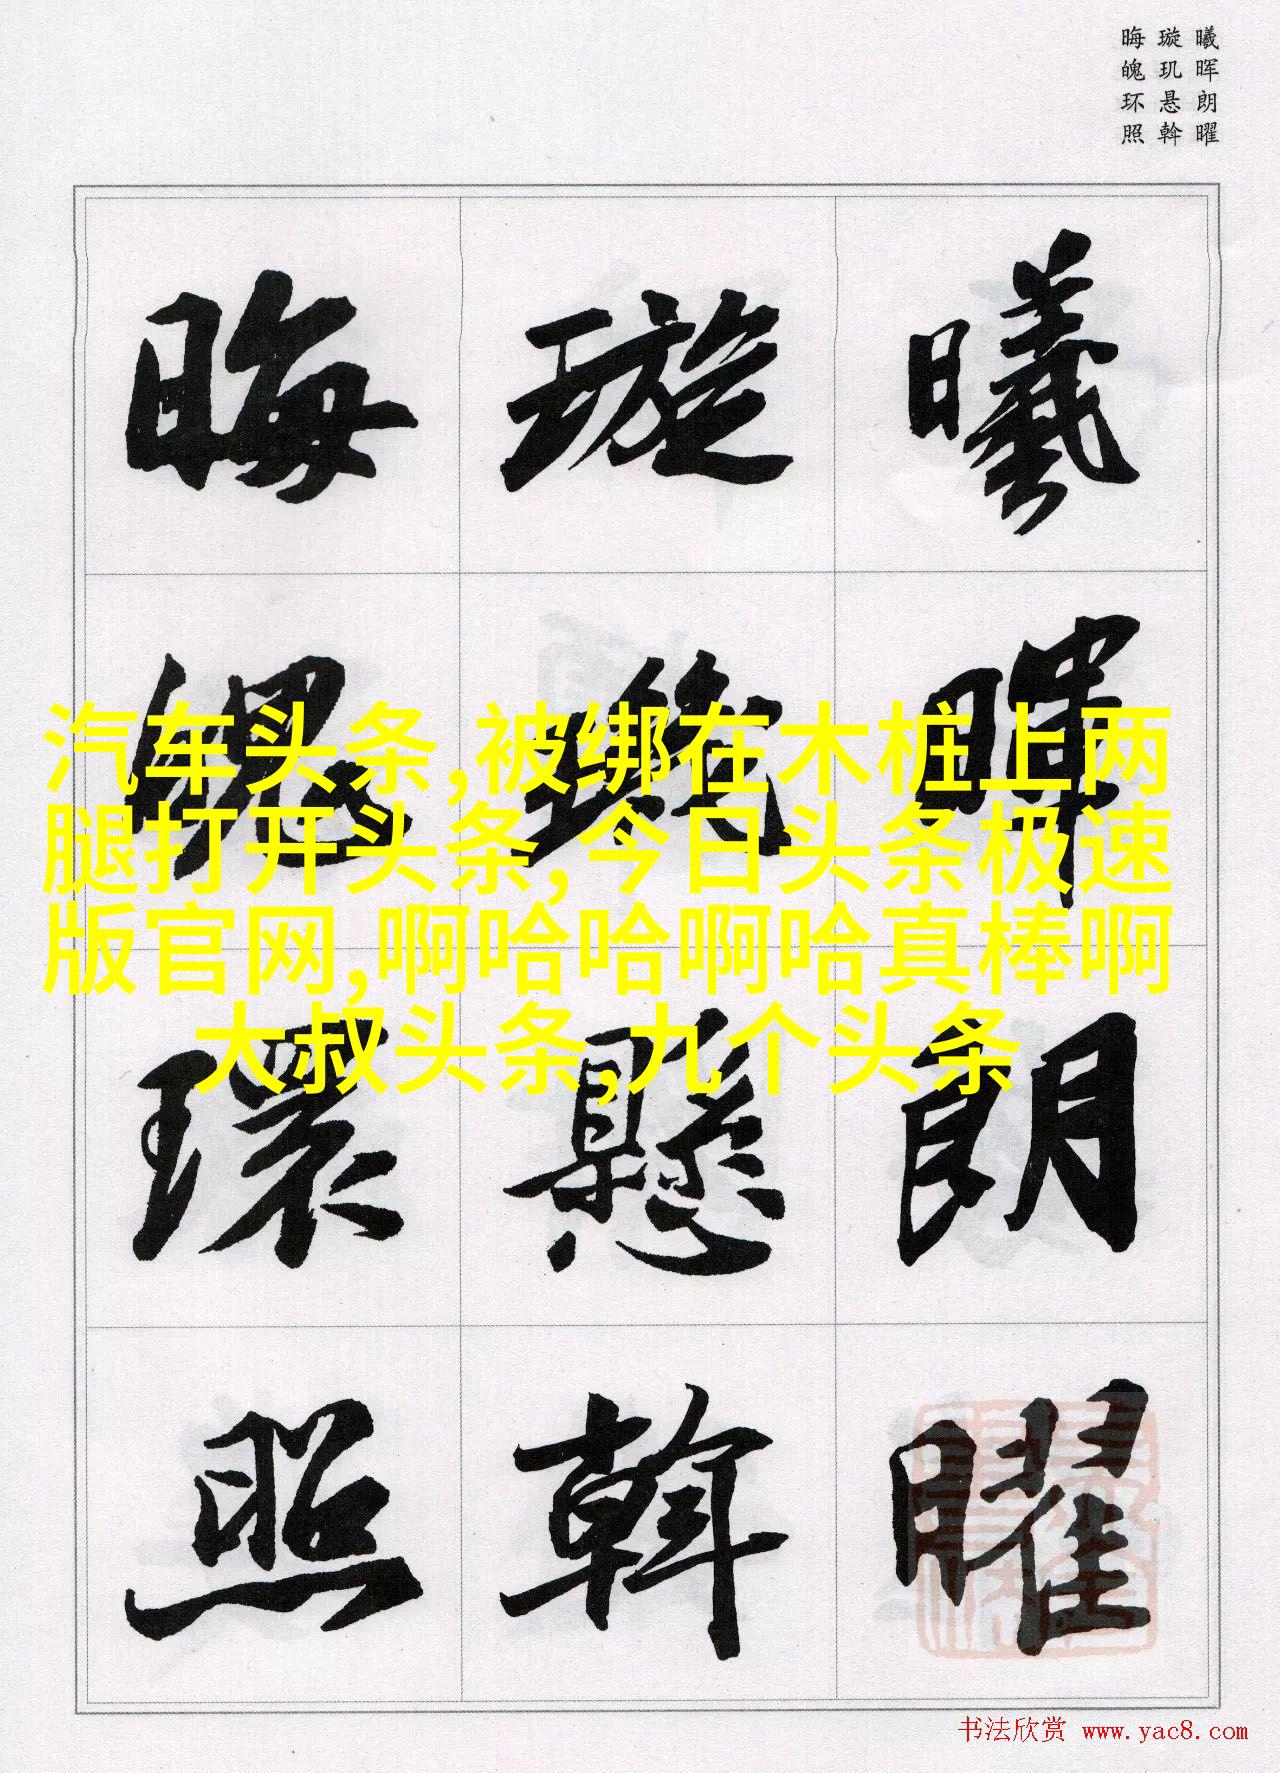 曦晖朗曜
璇玑悬斡
晦魄环照
曦暉朗曜
璇璣懸斡
晦魄環照
汽车头条,被绑在木桩上两
腿打开头条, 今日头条极速
版官网,啊哈哈啊哈真棒啊
大叔头条,九个头条
书法欣赏 www.yac8.com